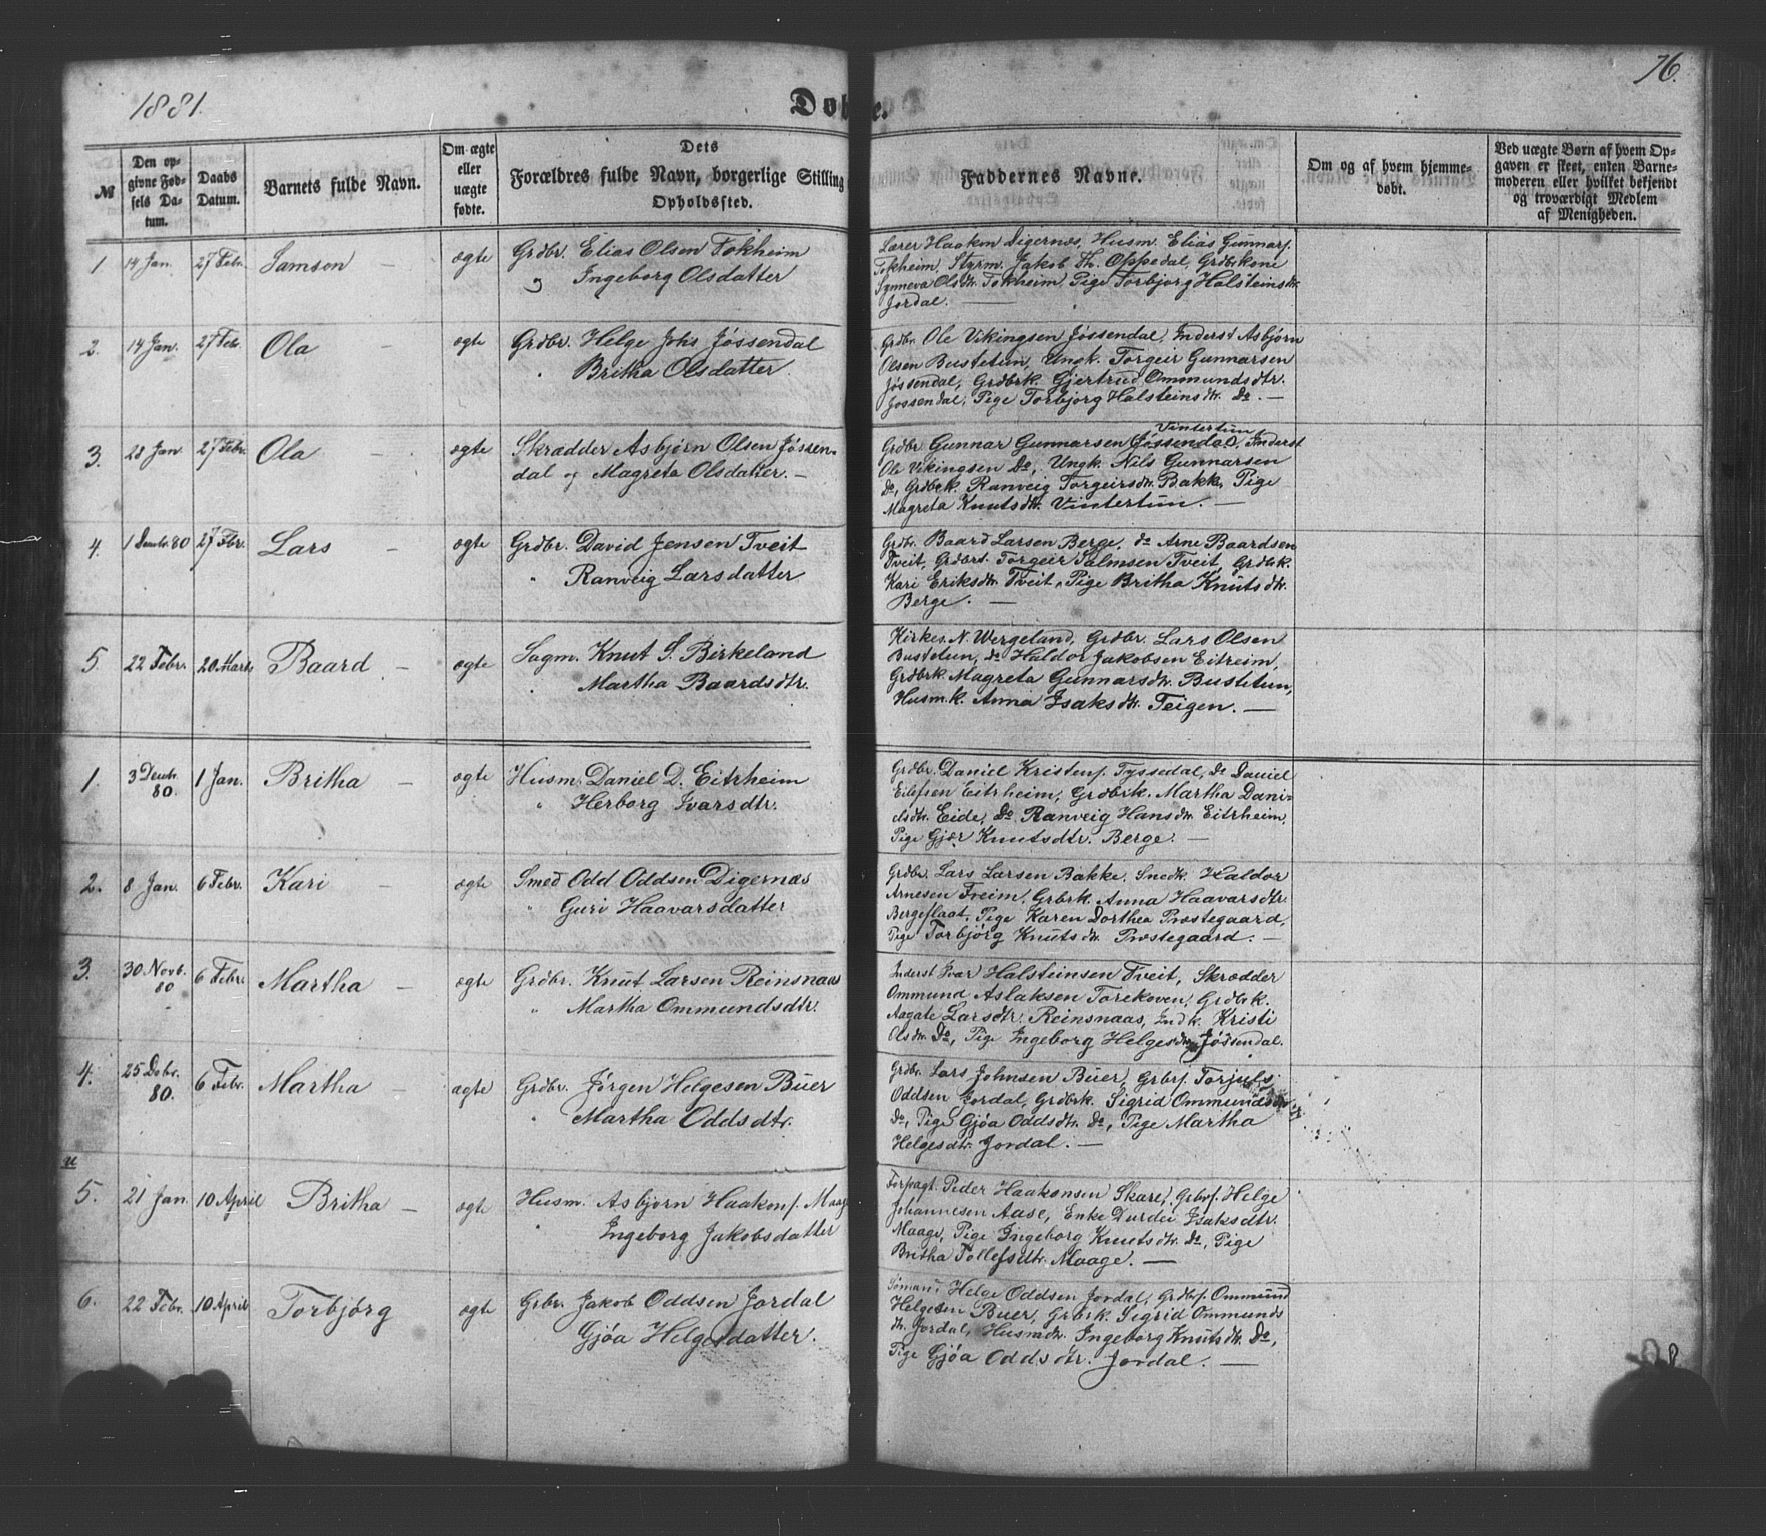 1881.
Døbte.
76.
№
Den opgivne Fødsels Datum.
Daabs Datum.
Barnets fulde Navn.
Om ægte eller uægte fødte.
Dets Forældres fulde Navn, borgerlige Stilling Opholdssted.
Faddernes Navne.
Om og af hvem hjemmedøbt.
Ved uægte Børn af hvem Opgaven er skeet, enten Barnemoderen eller hvilket bekjendt og troværdigt Medlem af Menigheden.
1 14 Jan. 27 Febr. Samson – ægte Grdbr. Elias Olsen Tokheim
Ingeborg Olsdatter
Lærer Haakon Digernæs, Husm. Elias Gunnars.
Tokheim, Styrm. Jakob Th. Oppedal, Grdbrkone
Synneva Olsdtr. Tokheim, Pige Torbjorg Halsteinsdtr.
Jordal. —
2. 14 Jan. 27 Febr. Ola – ægte Grdbr. Helge Johs Jøssendal
" Britha Olsdatter.
Grdbr. Ole Vikingsen Jøssendal, Inderst Asbjørn
Olsen Bustetun, Ungk. Torgeir Gunnarsen
Jøssendal, Grdbrk. Gjertrud Ommundsdtr.
Jossendal, Pige Torbjorg Halsteinsdtr. Do. —
3. 23 Jan. 27 Febr. Ola – ægte Skrædder Asbjørn Olsen Jøssen-
dal og Magreta Olsdatter. –
Vintertun
Grdbr. Gunnar Gunnarsen Jøssendal, Inderst
Ole Vikingsen Do, Ungk. Nils Gunnarsen
Do, Grdbrk. Ranveig Torgeirsdtr. Bakke, Pige
Magreta Knutsdtr. Vintertun. —
4. 1 Decbr. 80 27 Fbr. Lars – ægte Grdbr. David Jensen Tveit
" Ranveig Larsdatter
Grdbr. Baard Larsen Berge, do Arne Baardsen
Tveit, Grdbrs. Torgeir Salmsen Tveit, Grdbrk.
Kari Eriksdtr. Tveit, Pige Britha Knutsdtr.
Berge. —
5. 22 Febr. 20 Marts Baard – ægte Sagm. Knut S. Birkeland
" Martha Baardsdtr.
Kirkes. N. Wergeland, Grdbr. Lars Olsen
Bustetun, do Haldor Jakobsen Eitreim,
Grdbrk. Magreta Gunnarsdtr. Bustetun,
Husm.k. Anna Isaksdtr. Teigen. —
1. 3 Decbr. 80. 1 Jan. Britha – ægte Husm. Daniel D. Eitrheim
" Herborg Ivarsdtr.
Grdbr. Daniel Kristens. Tyssedal, Do Daniel
Eilefsen Eitrheim, Grdbrk. Martha Dani-
elsdtr. Eide, Do Ranveig Hansdtr. Eitrheim,
Pige Gjør Knutsdtr. Berge. —
2. 8 Jan. 6 Febr. Kari – ægte Smed Odd Oddsen Digernæs
" Guri Haavarsdatter
Grdbr. Lars Larsen Bakke, Snedk. Haldor
Arnesen Freim, Grbrk. Anna Haavarsdtr.
Bergeflaat, Pige Karen Dorthea Præstegaard,
Pige Torbjørg Knutsdtr. Præstegaard. —
3. 30 Novb. 80 6 Febr. Martha – ægte Grdbr. Knut Larsen Reinsnaas
" Martha Ommundsdtr.
Inderst Ivar Halsteinsen Tveit, Skrædder
Ommund Aslaksen Torekoven, Grdbrk.
Aagate Larsdtr. Reinsnaas, Ind k. Kristi
Olsdtr. Do, Pige Ingeborg Helgesdtr. Jøssendal.
4. 25 Dcbr. 80. 6 Febr. Martha – ægte Grdbr. Jørgen Helgesen Buer
" Martha Oddsdtr.
Grdbr. Lars Johnsen Buer, Grbrs. Torjuls
Oddsen Jordal, Grdbrk. Sigrid Ommundsdtr.
Do, Pige Gjøa Oddsdtr. Do, Pige Martha
Helgesdtr. Jordal. —
5. 21 Jan. 10 April Britha – ægte Husm. Asbjørn Haakons. Maage
" Ingeborg Jakobsdatter
Forpagt. Peder Haakonsen Skare, Grbrs. Helge
Johannesen Aase, Enke Durdei Isaksdtr.
Maage, Pige Ingeborg Knutsdtr. Do, Pige
Britha Tollefsdtr. Maage. —
6. 22 Febr. 10 April Torbjørg ægte Grbr. Jakob Oddsen Jordal
Gjøa Helgesdatter.
Sømand Helge Oddsen Jordal, Grdbrs. Ommund
Helgesen Buer, Grbrk. Sigrid Ommunds
dtr. Jordal, Husmdtr. Ingeborg Knutsdtr. Do,
Pige Gjøa Oddsdtr. Jordal. —